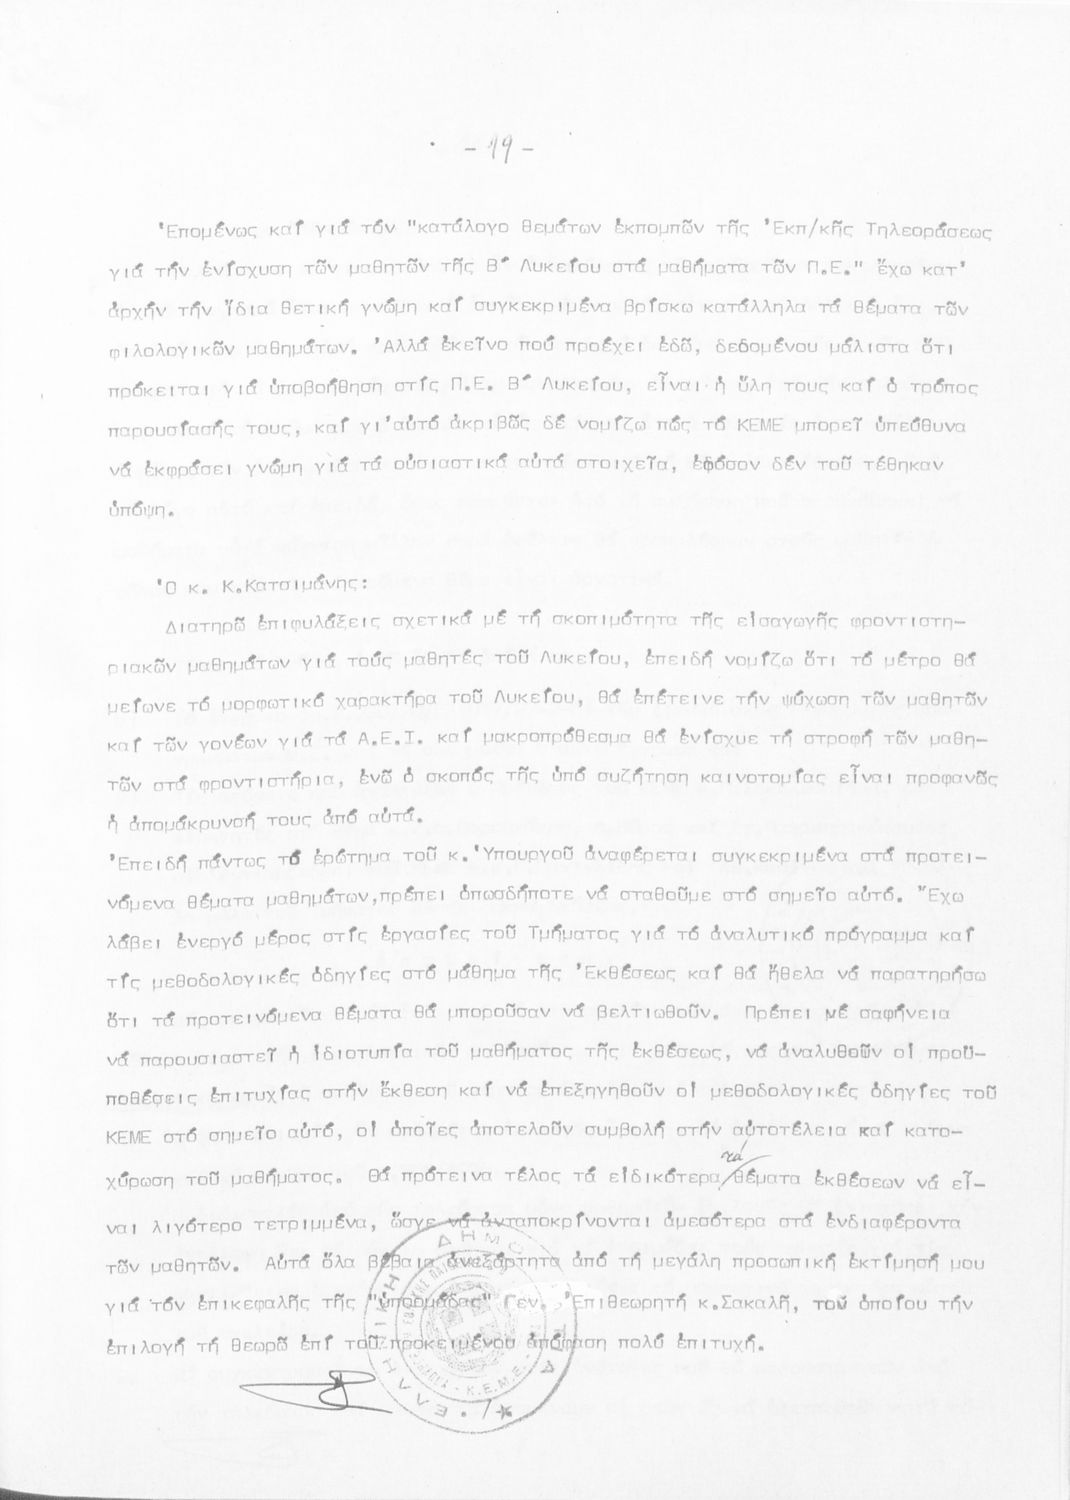 - 19 -
Ἐπομένως καί γιά τόν "κατάλογο θεμάτων ἐκπομπῶν τῆς Ἐκπ/κῆς Τηλεοράσεως
γιά τήν ἐνίσχυση τῶν μαθητῶν τῆς Β΄ Λυκείου στά μαθήματα τῶν Π.Ε." ἔχω κατ'
ἀρχήν τήν ἴδια θετική γνώμη καί συγκεκριμένα βρίσκω κατάλληλα τά θέματα τῶν
φιλολογικῶν μαθημάτων. Ἀλλά ἐκεῖνο πού προέχει ἐδῶ, δεδομένου μάλιστα ὅτι
πρόκειται γιά ὑποβοήθηση στίς Π.Ε. Β΄ Λυκείου, εἶναι ἡ ὕλη τους καί ὁ τρόπος
παρουσίασής τους, καί γι'αὐτό ἀκριβῶς δέ νομίζω πώς τό ΚΕΜΕ μπορεῖ ὑπεύθυνα
νά ἐκφράσει γνώμη γιά τά οὐσιαστικά αὐτά στοιχεῖα, ἐφόσον δέν τοῦ τέθηκαν
ὑπόψη.
Ὁ κ. Κ.Κατσιμάνης:
Διατηρῶ ἐπιφυλάξεις σχετικά μέ τή σκοπιμότητα τῆς εἰσαγωγῆς φροντιστη-
ριακῶν μαθημάτων γιά τούς μαθητές τοῦ Λυκείου, ἐπειδή νομίζω ὅτι τό μέτρο θά
μείωνε τό μορφωτικό χαρακτήρα τοῦ Λυκείου, θά ἐπέτεινε τήν ψύχωση τῶν μαθητῶν
καί τῶν γονέων γιά τά Α.Ε.Ι. καί μακροπρόθεσμα θά ἐνίσχυε τή στροφή τῶν μαθη-
τῶν στά φροντιστήρια, ἐνῶ ὁ σκοπός τῆς ὑπό συζήτηση καινοτομίας εἶναι προφανῶς
ἡ ἀπομάκρυνσή τους ἀπό αὐτά.
Ἐπειδή πάντως τό ἐρώτημα τοῦ κ.Ὑπουργοῦ ἀναφέρεται συγκεκριμένα στά προτει-
νόμενα θέματα μαθημάτων,πρέπει ὁπωσδήποτε νά σταθοῦμε στό σημεῖο αὐτό. Ἔχω
λάβει ἐνεργό μέρος στίς ἐργασίες τοῦ Τμήματος γιά τό ἀναλυτικό πρόγραμμα καί
τίς μεθοδολογικές ὁδηγίες στό μάθημα τῆς Ἐκθέσεως καί θά ἤθελα νά παρατηρήσω
ὅτι τά προτεινόμενα θέματα θά μποροῦσαν νά βελτιωθοῦν. Πρέπει μέ σαφήνεια
νά παρουσιαστεῖ ἡ ἰδιοτυπία τοῦ μαθήματος τῆς ἐκθέσεως, νά ἀναλυθοῦν οἱ προϋ-
ποθέσεις ἐπιτυχίας στήν ἔκθεση καί νά ἐπεξηγηθοῦν οἱ μεθοδολογικές ὁδηγίες τοῦ
ΚΕΜΕ στό σημεῖο αὐτό, οἱ ὁποῖες ἀποτελοῦν συμβολή στήν αὐτοτέλεια καί κατο-
χύρωση τοῦ μαθήματος. Θά πρότεινα τέλος τά εἰδικότερα/τά θέματα ἐκθέσεων νά εἶ-
ναι λιγότερο τετριμμένα, ὥσγε νά ἀνταποκρίνονται ἀμεσότερα στά ἐνδιαφέροντα
τῶν μαθητῶν. Αὐτά ὅλα βέβαια ἀνεξάρτητα ἀπό τή μεγάλη προσωπική ἐκτίμησή μου
γιά τόν ἐπικεφαλῆς τῆς "ὑποομάδας" Γεν. Ἐπιθεωρητή κ.Σακαλῆ, τοῦ ὁποίου τήν
ἐπιλογή τή θεωρῶ ἐπί τοῦ προκειμένου ἀπόφαση πολύ ἐπιτυχή.
ΕΛΛΗΝΙΚΗ ΔΗΜΟΚΡΑΤΙΑ
Κ.Ε.Μ.Ε.